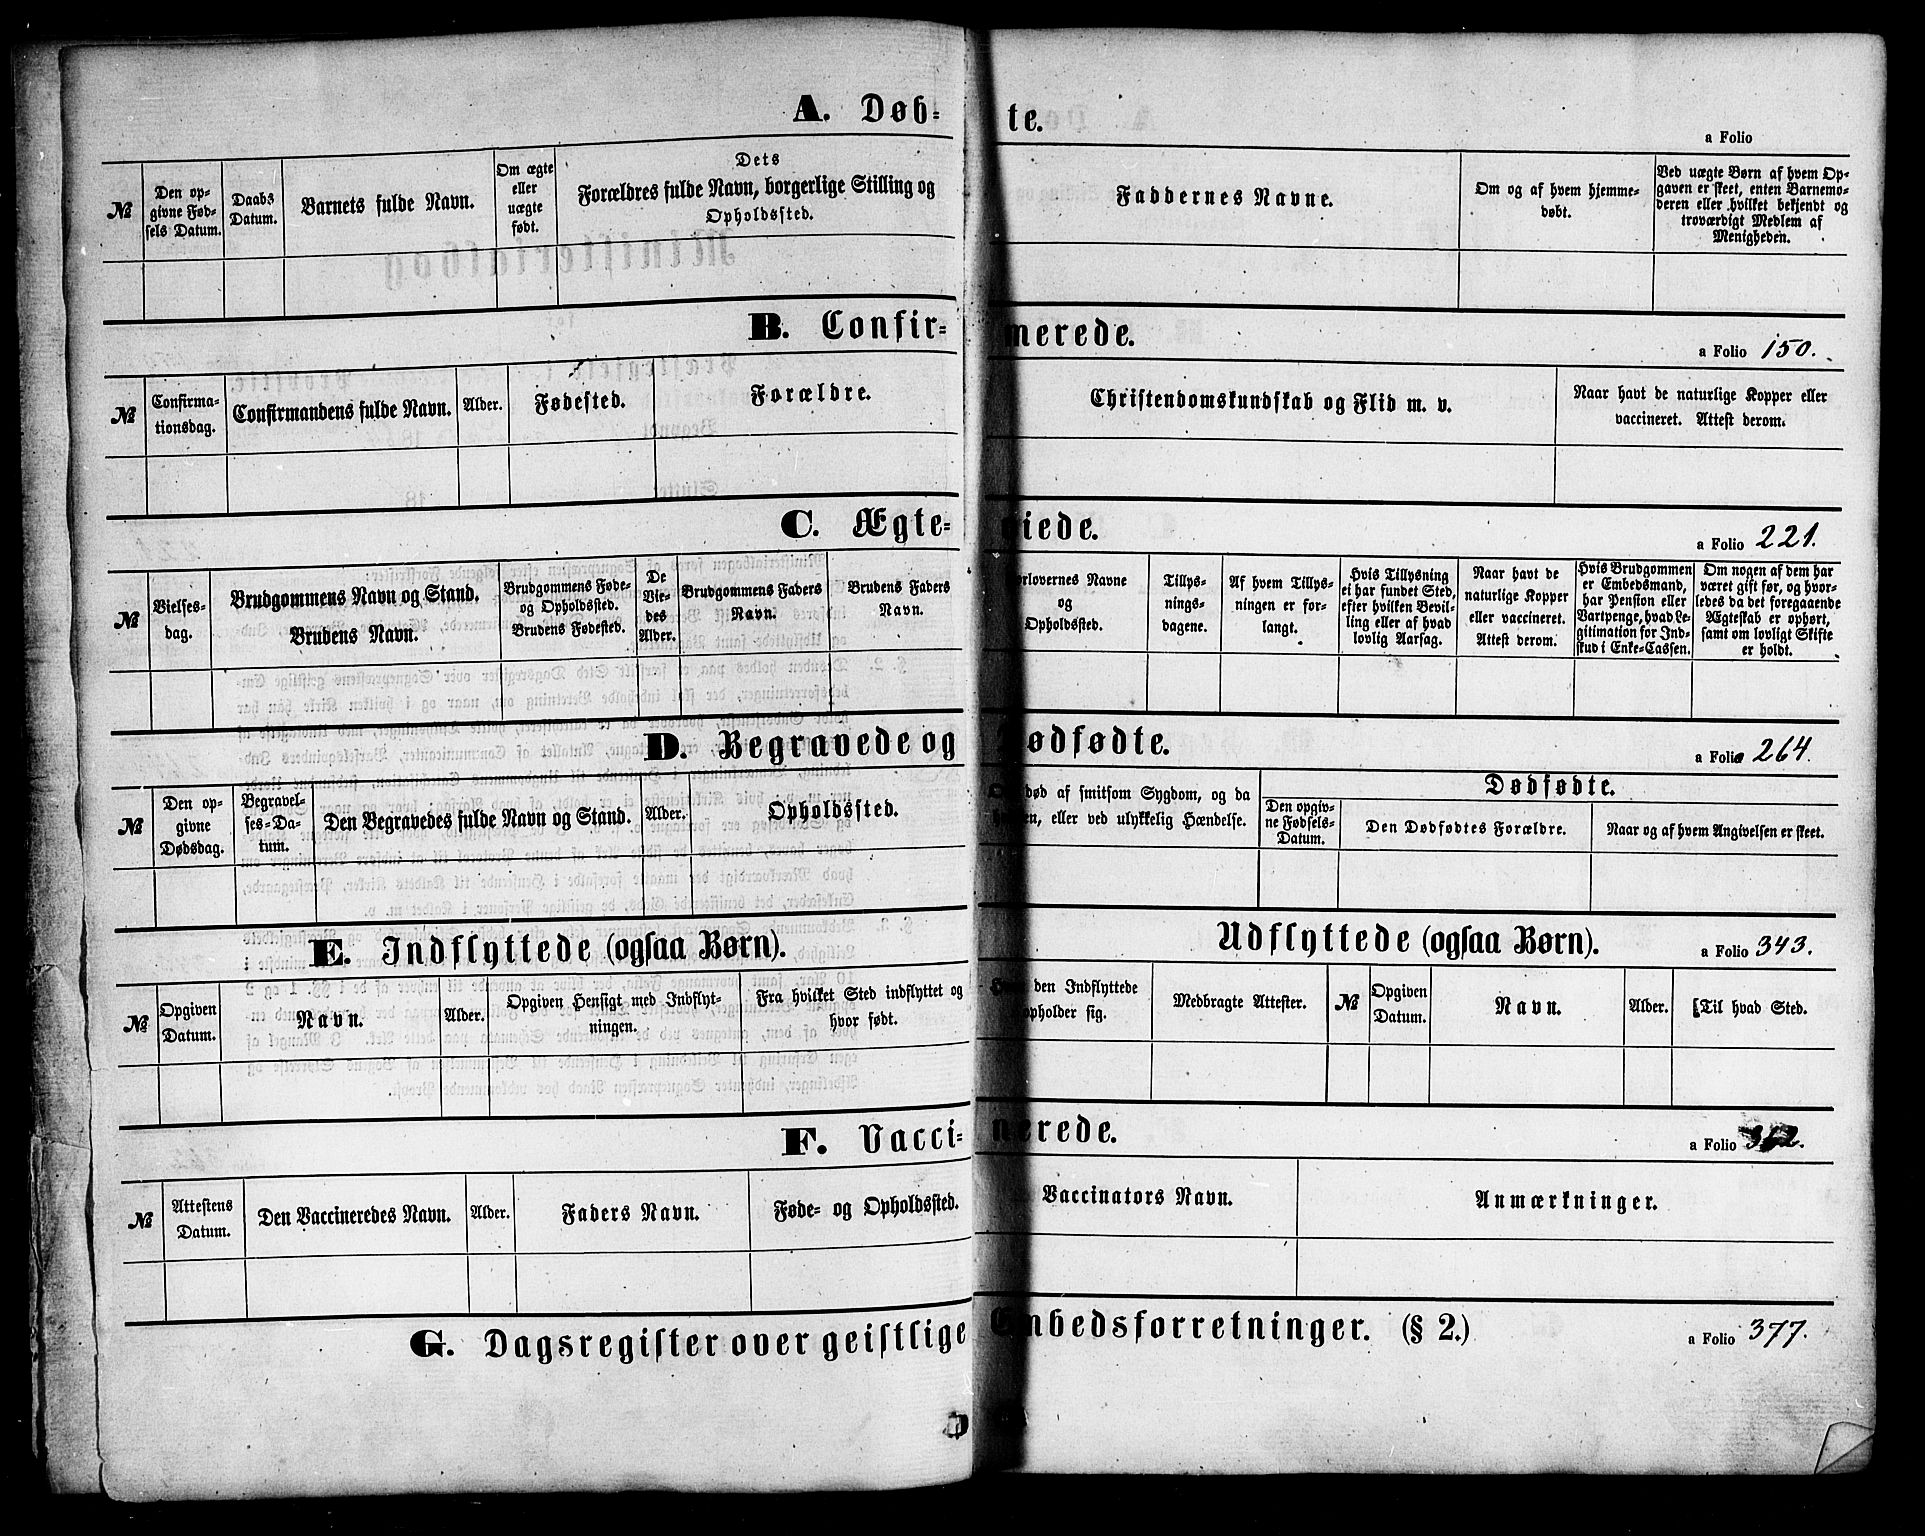 A. Døb- te.
a Folio
№
Den op-
givne Fød-
sels Datum.
Daabs
Datum.
Barnets fulde Navn.
Om ægte
eller
uægte
født.
Dets
Forældres fulde Navn, borgerlige Stilling og
Opholdssted.
Faddernes Navne.
Om og af hvem hjemme-
døbt.
Ved uægte Børn af hvem Op-
gaven er skeet, enten Barnemo-
deren eller hvilket bekjendt og
troværdigt Medlem af
Menigheden.
B. Confir- merede.
a Folio 150.
№
Confirma-
tionsdag.
Confirmandens fulde Navn.
Alder.
Fødested.
Forældre.
Christendomskundskab og Flid m. v.
Naar havt de naturlige Kopper eller
vaccineret. Attest derom.
C. Ægte- viede.
a Folio 221.
№
Vielses-
dag.
Brudgommens Navn og Stand.
Brudens Navn.
Brudgommens Føde-
og Opholdssted.
Brudens Fødested.
De
Vie-
des
Alder.
Brudgommens Faders
Navn.
Brudens Faders
Navn.
orlovernes Navne
og
Opholdssted.
Tillys-
nings-
dagene.
Af hvem Tillys-
ningen er for-
langt.
Hvis Tillysning
ei har fundet Sted,
efter hvilken Bevil-
ling eller af hvad
lovlig Aarsag.
Naar havt de
naturlige Kopper
eller vaccineret.
Attest derom.
Hvis Brudgommen
er Embedsmand,
har Pension eller
Vartpenge, hvad Le-
gitimation for Ind-
skud i Enke-Cassen.
Om nogen af dem har
været gift før, og hvor-
ledes da det foregaaende
Ægteskab er ophørt,
samt om lovligt Skifte
er holdt.
D. Begravede og Dødfødte.
a Folio 264.
№
Den op-
givne
Dødsdag.
Begravel-
ses-Da-
tum.
Den Begravedes fulde Navn og Stand.
Alder.
Opholdssted.
død af smitsom Sygdom, og da
en, eller ved ulykkelig Hændelse.
Dødfødte.
Den opgiv-
ne Fødsels-
Datum.
Den Dødfødtes Forældre.
Naar og af hvem Angivelsen er skeet.
E. Indflyttede (ogsaa Børn). Udflyttede (ogsaa Børn).
a Folio 343.
№
Opgiven
Datum.
Navn.
Alder.
Opgiven Hensigt med Indflyt-
ningen.
Fra hvilket Sted indflyttet og
hvor født.
den Indflyttede
opholder sig.
Medbragte Attester.
№
Opgiven
Datum.
Navn.
Alder.
Til hvad Sted.
F. Vacci- nerede.
a Folio
№
Attestens
Datum.
Den Vaccineredes Navn.
Alder.
Faders Navn.
Føde- og Opholdssted.
Vaccinators Navn.
Anmærkninger.
G. Dagsregister over geistlige Embedsforretninger. (§ 2.)
a Folio 377.